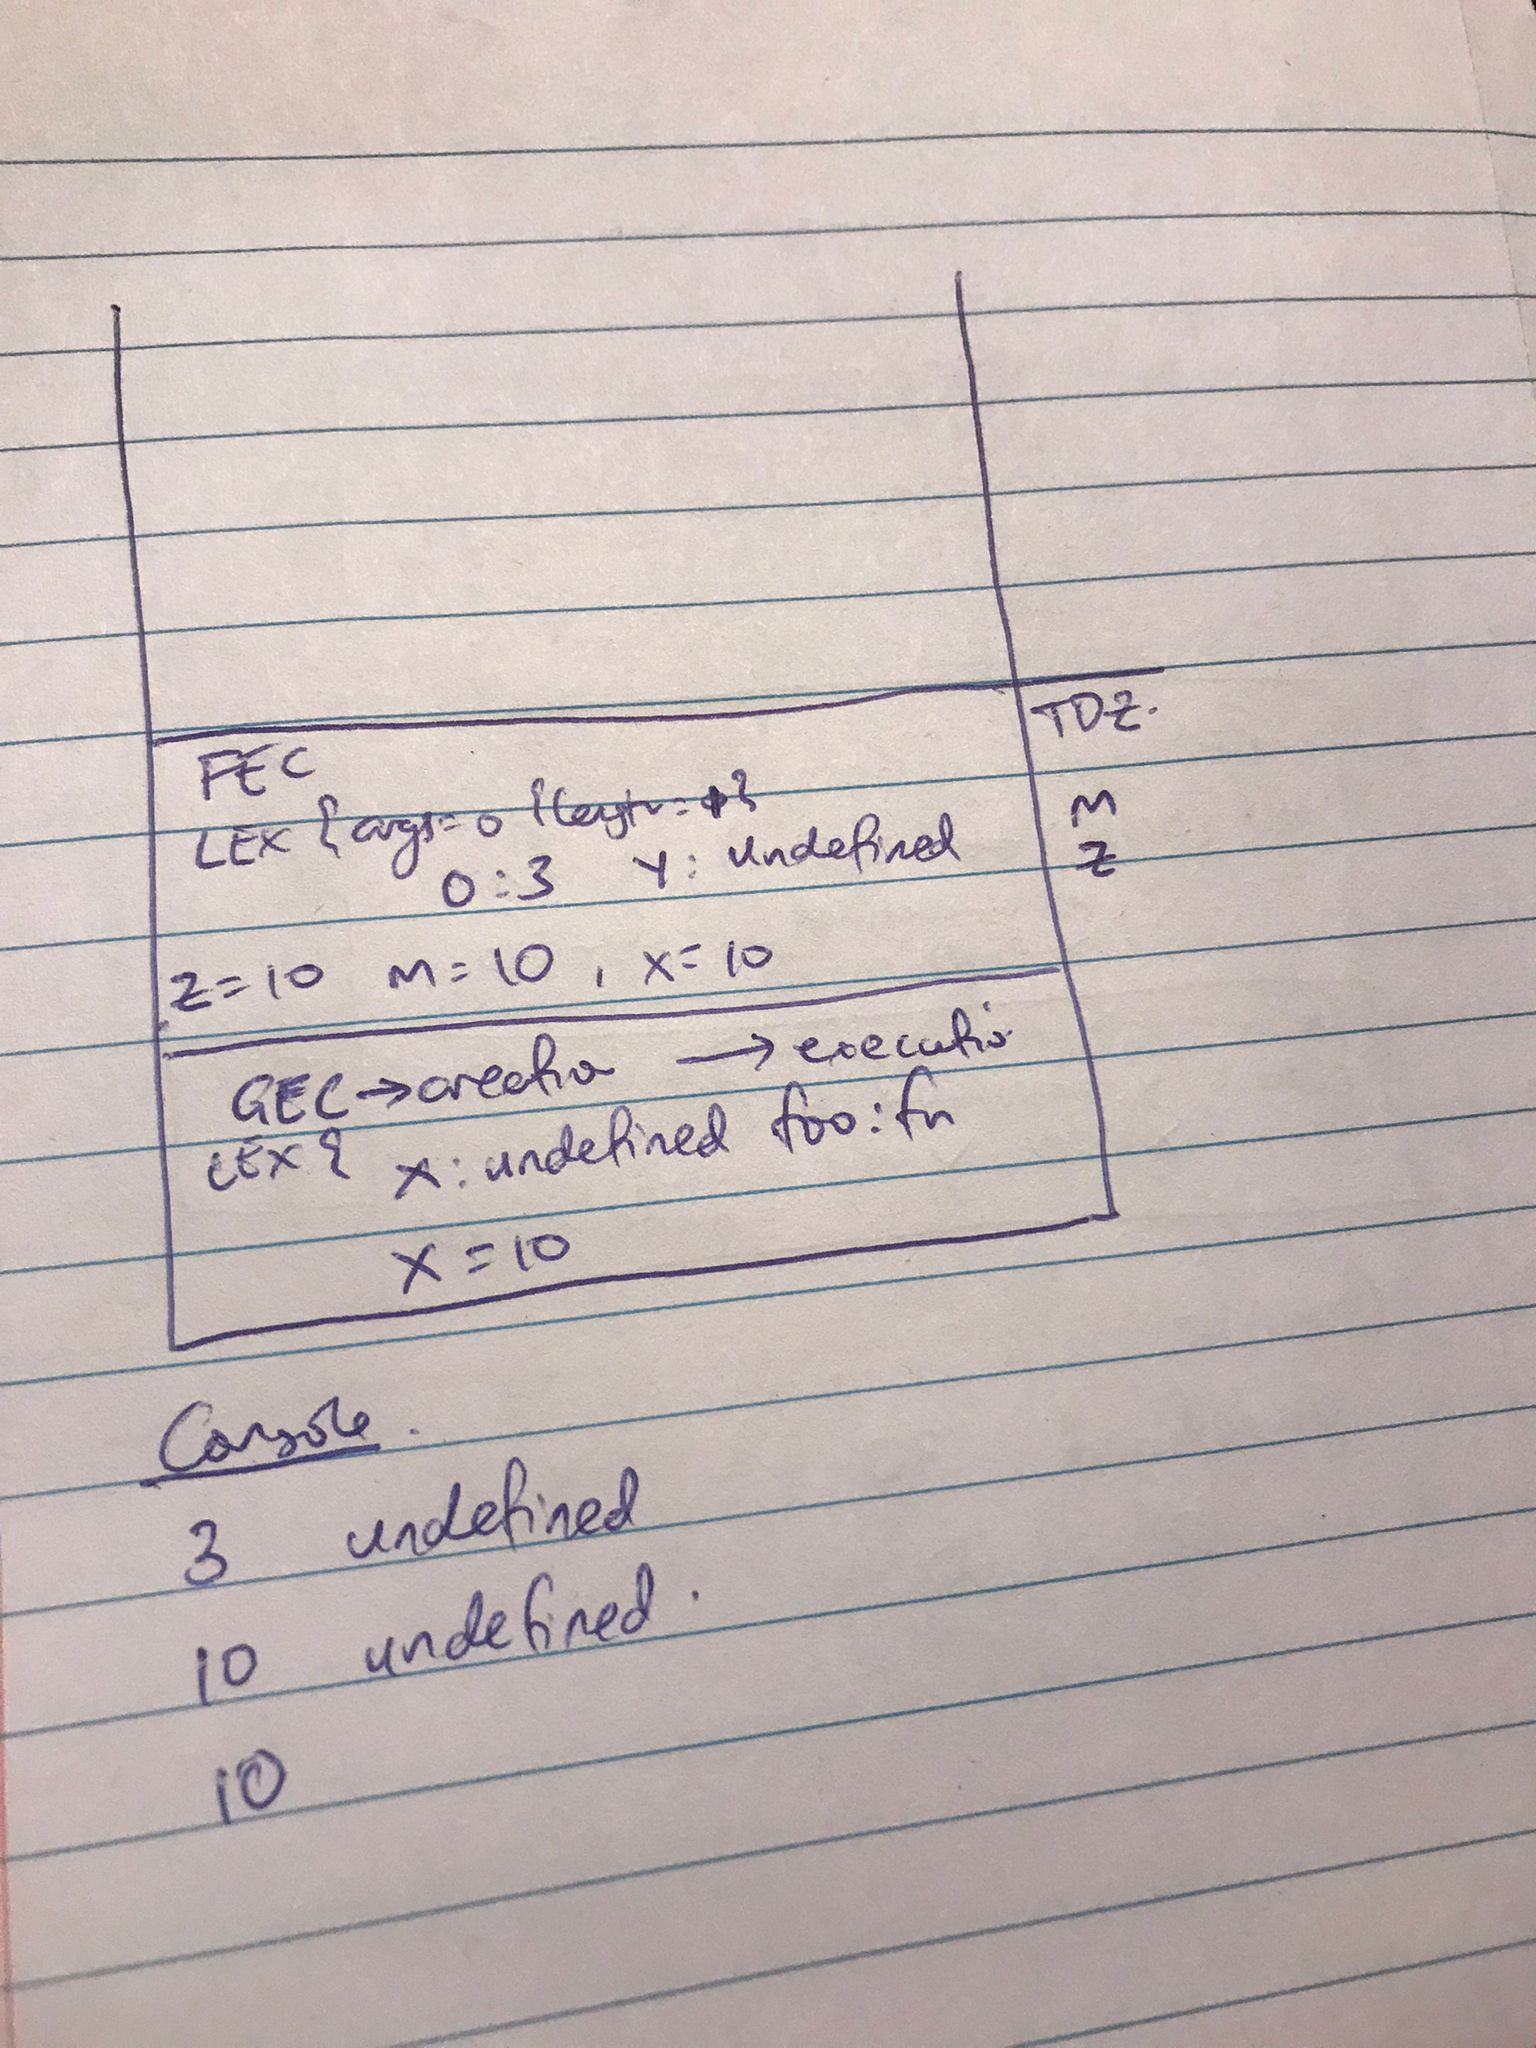 TDZ.
FEC
M
LEX { args = 0 {length = }
Z
0 : 3 Y : undefined
Z = 10 M = 10 , X = 10
GEC → creatio → executio
LEX { X : undefined foo : fn
X = 10
Console.
3 undefined
10 undefined.
10